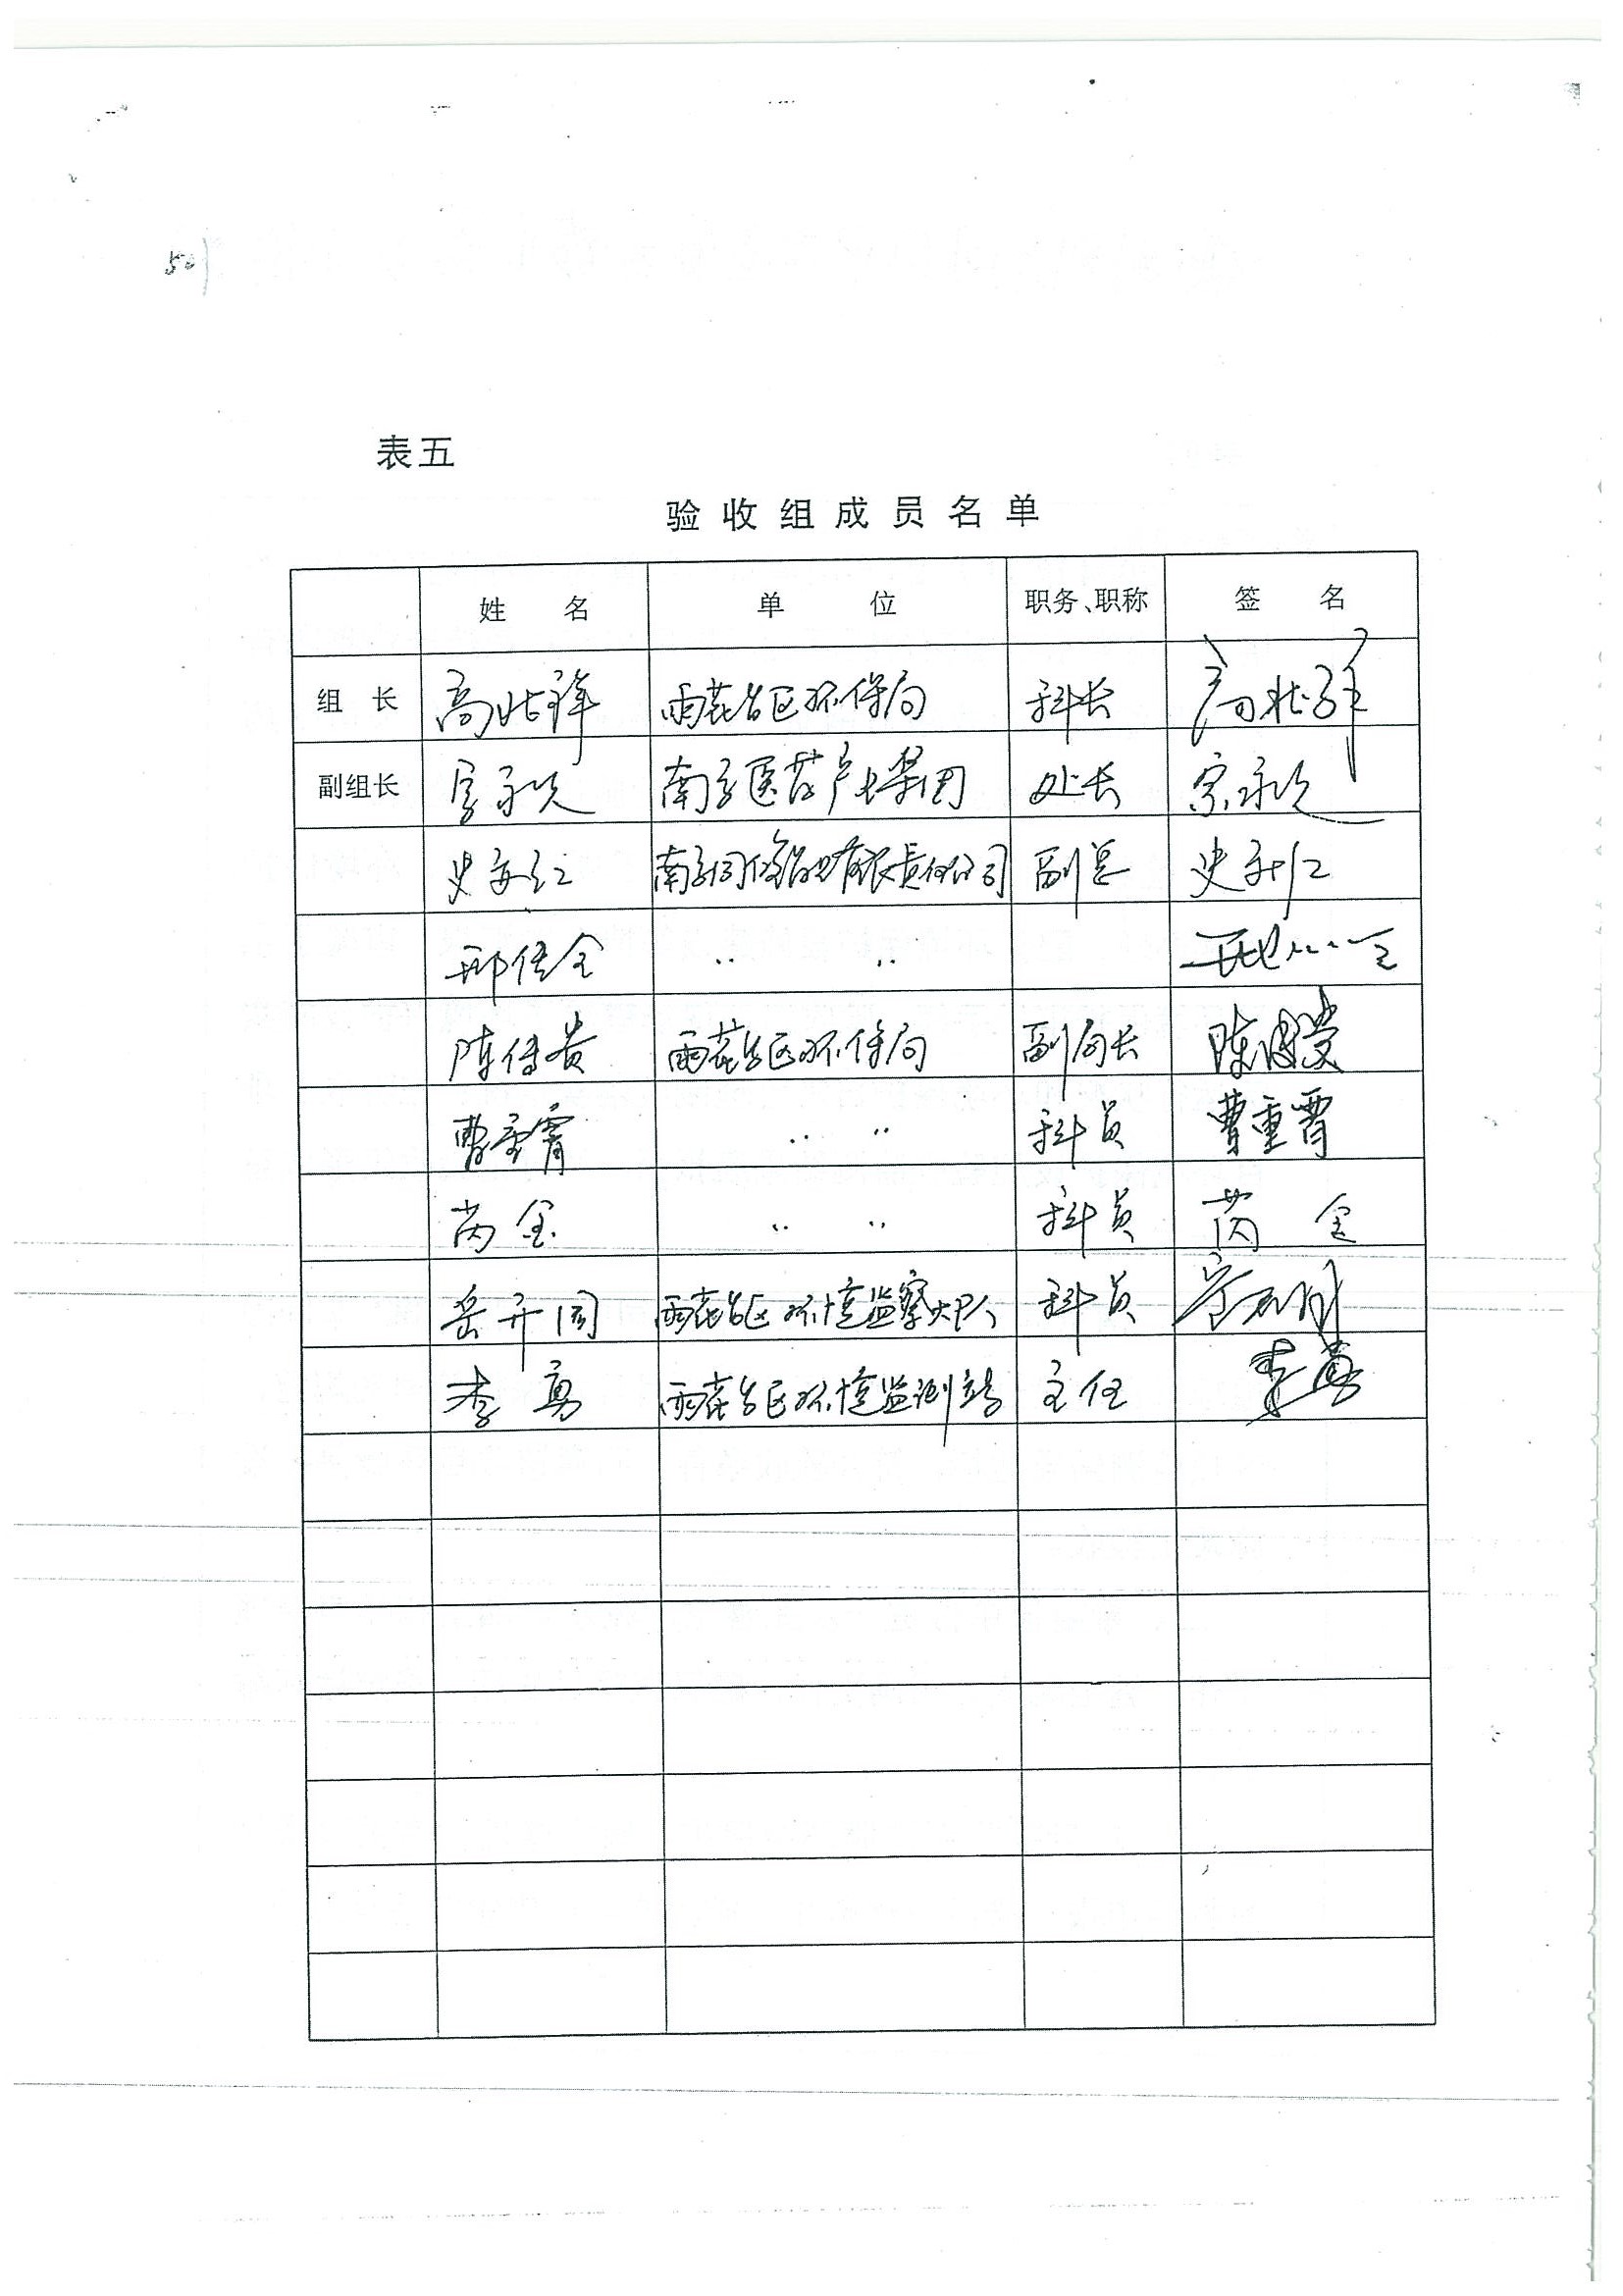 表五
验收组成员名单
姓 名 单 位 职务、职称 签 名
组 长 高兆祥 雨花台区环保局 科长
副组长 宗永久 南京医药产业集团 处长 宗永久
史 南京同仁堂药业有限责任公司 副总 史
邢传全 〃 〃
陈传贵 雨花台区环保局 副局长 陈传贵
曹重霄 〃 〃 科员 曹重霄
芮金 〃 〃 科员 芮 金
岳开国 雨花台区环境监察大队 科员
李勇 雨花台区环境监测站 主任 李勇